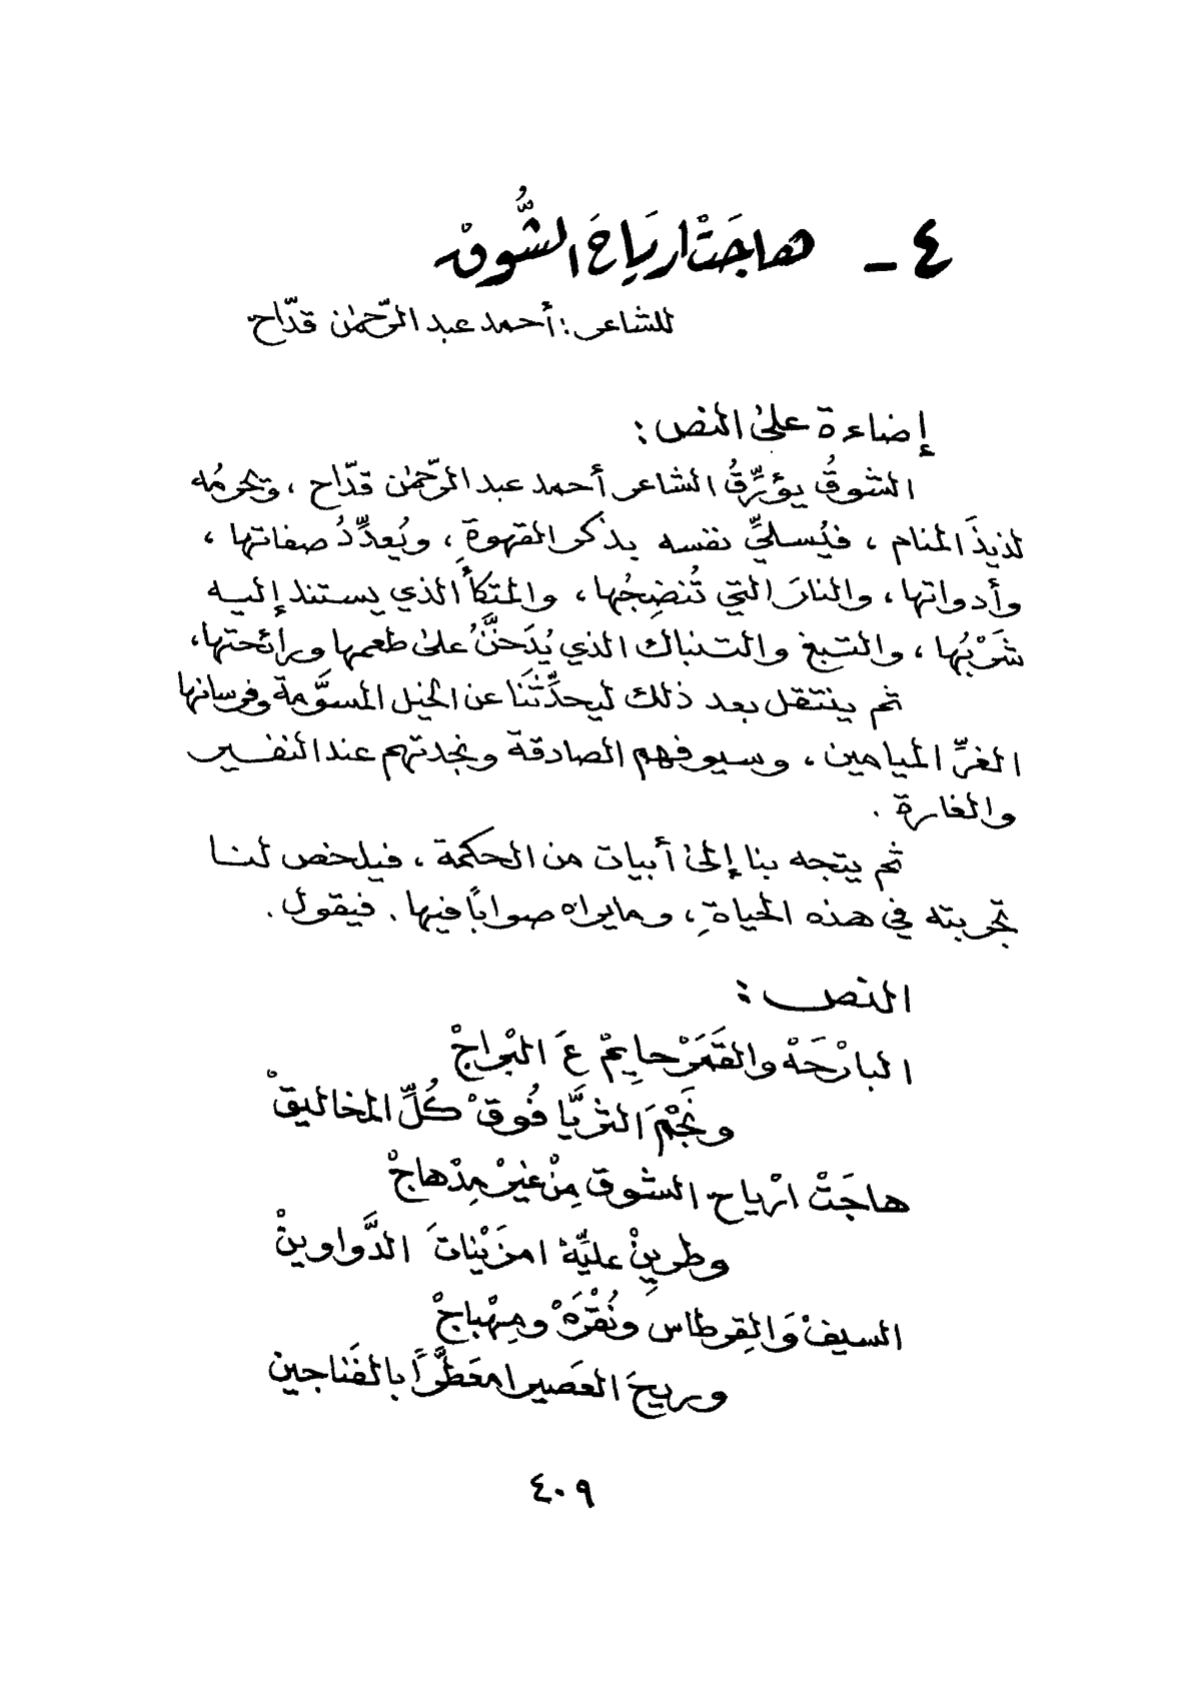 ٤ - هاجَتْ ارياحَ الشُّوقْ
للشاعر : أحمد عبد الرّحمٰن قدّاح
إضاءة علىٰ النص :
الشوقُ يؤرِّقُ الشاعر أحمد عبد الرّحمٰن قدّاح ، ويحرمُه
لذيذَ المنام ، فيُسليِّ نفسه بذكر القهوةِ ، ويُعدِّدُ صفاتها ،
وأدواتها ، والنارَ التي تُنضِجُها ، والمتكأَ الذي يستند إليه
شَرْبُها ، والتبغ والتنباك الذي يُدَخَّنُ علىٰ طعمها ورائحتها ،
ثم ينتقل بعد ذلك ليحدِّثَنا عن الخيل المسوَّمة وفرسانها
الغرِّ الميامين ، وسيوفهم الصادقة ونجدتهم عند النفير
والغارة .
ثم يتجه بنا إلىٰ أبيات من الحكمة ، فيلخص لنا
تجربته في هذه الحياةِ ، وما يراه صواباً فيها . فيقول .
النص :
البارْحَهْ والقَمَرْ حايِمْ عَ البْراجْ
ونَجْمَ الثريَّا فُوقْ كُلِّ المخاليقْ
هاجَتْ ارْياح الشوق مِنْ غيرْ مِدْهاجْ
وطرينْ عليِّهْ امزَيْناتَ الدَّواوينْ
السيفْ وَالِقرطاس ونُقْرَهْ ومِهْباجْ
وريحَ العَصير امعَطَّراً بالفَناجين
٤٠٩